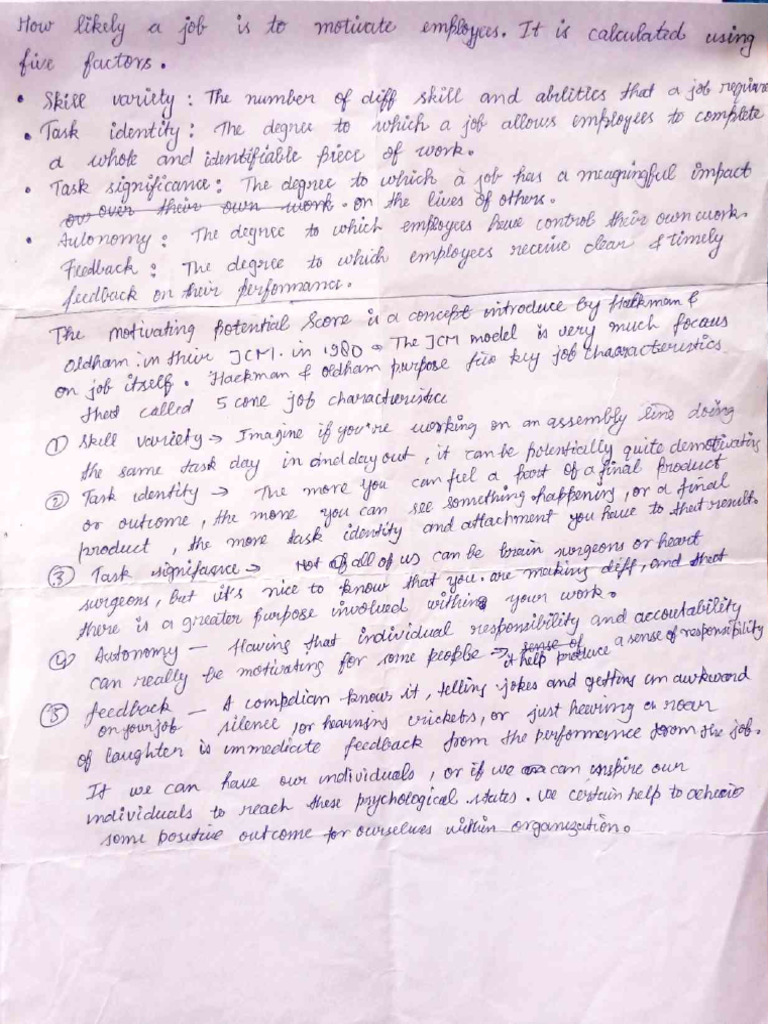 How likely a job is to motivate employees. It is calculated using
five factors.
• Skill variety : The number of diff skill and abilities that a job require
• Task identity : The degree to which a job allows employees to complete
a whole and identifiable piece of work.
• Task significance : The degree to which a job has a meaningful impact
over their own work. on the lives of others.
• Autonomy : The degree to which employees have control their own work.
Feedback : The degree to which employees receive clear & timely
feedback on their performance.
The motivating potential Score is a concept introduce by Hackman &
Oldham in thier JCM. in 1980 The JCM model is very much focaus
on job itself. Hackman & oldham purpose five key job characteristics
that called 5 core job characteristic
① Skill variety → Imagine if you're working on an assembly line doing
the same task day in and day out, it can be potentially quite demotivating
② Task identity → The more you can feel a part of a final product
or outcome, the more you can see something happening, or a final
product, the more task identity and attachment you have to that result.
③ Task signifance → Not of all of us can be brain surgeons or heart
surgeons, but it's nice to know that you are making diff, and that
there is a greater purpose involved within your work.
④ Autonomy — Having that individual responsibility and accoutability
can really be motivating for some people → sense of it help produce a sense of responsibility
⑤ feedback — A comedian knows it, telling jokes and getting an awkward
on your job silence, or hearning crickets, or just hearing a roar
of laughter is immediate feedback from the performance from the job.
If we can have our individuals, or if we can inspire our
individuals to reach these psychological states. we certain help to
some positive outcome for ourselves within organization.